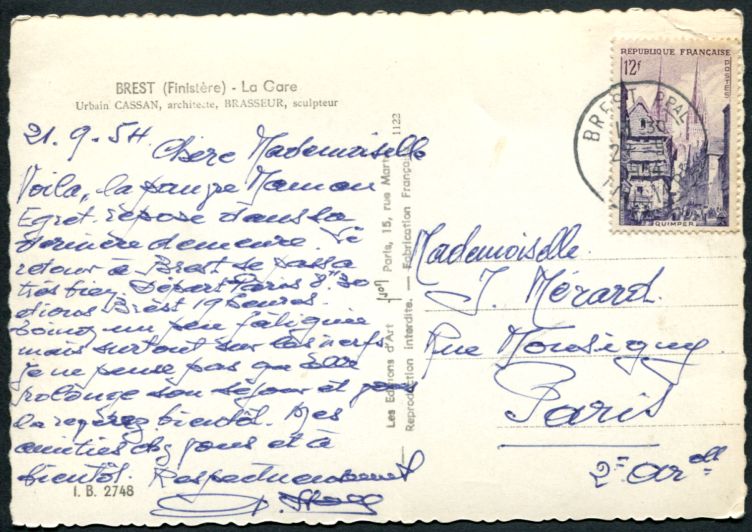 BREST (Finistère) - La Gare
Urbain CASSAN, architecte, BRASSEUR, sculpteur
21.9.54
Chère Mademoiselle
Voila, la pauvre Maman
Egret repose dans sa
dernière demeure. Le
retour à Brest se passa
très bien, Départ Paris 8h30
Brest 19 heures.
un peu fatiguée
mais surtout sur les nerfs.
je ne pense pas qu'elle
prolonge son séjour et
la bientôt. Mes
amitiés chez vous et à
bientôt. Respectueusement
I. B. 2748
Les Editions d'Art Jos Paris, 15, rue Mart 1122
Reproduction Interdite. — Fabrication Française
RÉPUBLIQUE FRANÇAISE
12f
POSTES
QUIMPER
BREST PPAL
Mademoiselle
J. Mérard.
Rue Monsigny
Paris
2e Ardt